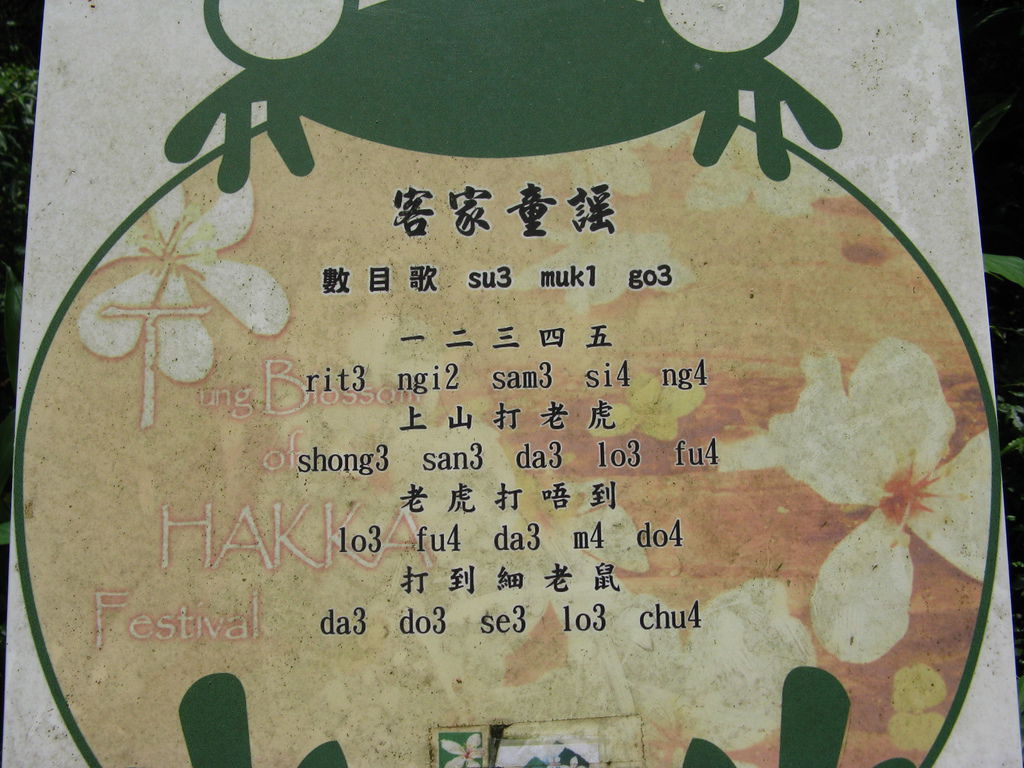 客家童謠
數目歌 su3 muk1 go3
一二三四五
rit3 ngi2 sam3 si4 ng4
上山打老虎
shong3 san3 da3 lo3 fu4
老虎打唔到
lo3 fu4 da3 m4 do4
打到細老鼠
da3 do3 se3 lo3 chu4
Tung Blossom
of
HAKKA
Festival